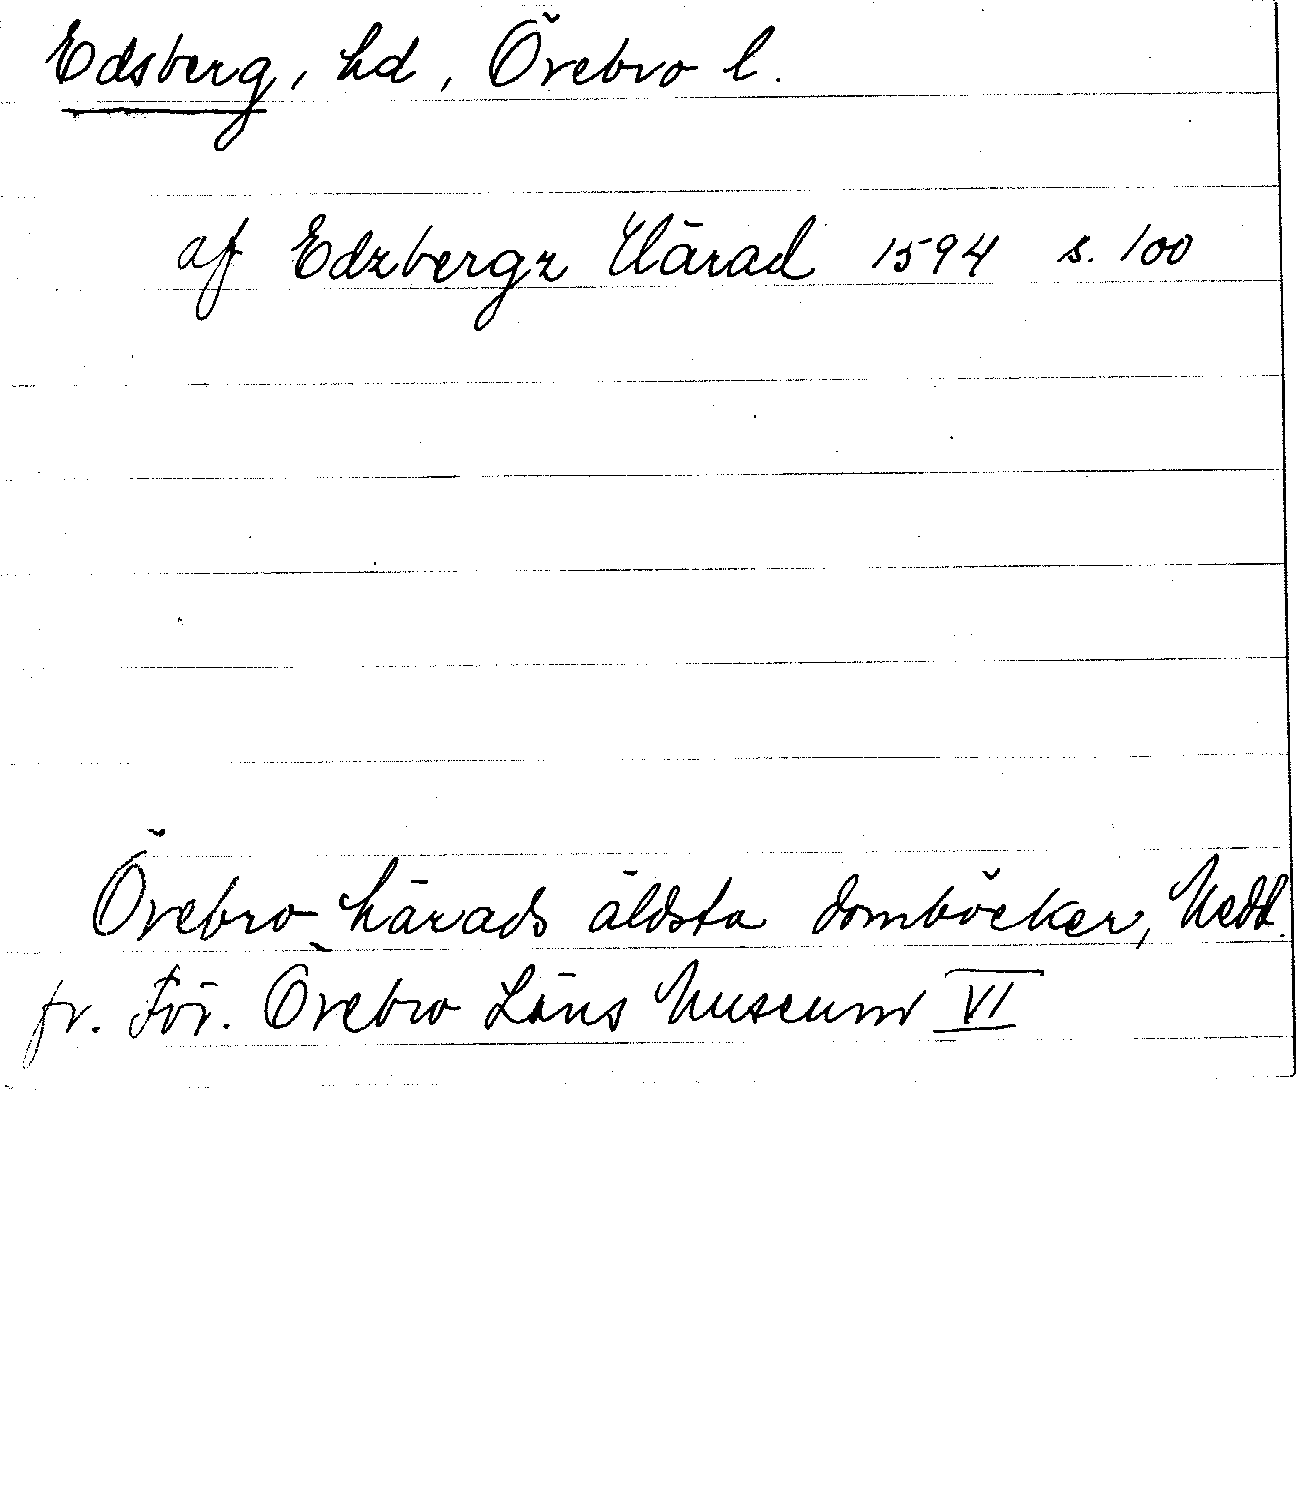 Edsberg, hd, Örebro l.
af Edzbergz Härad 1594 s. 100
Örebro härads äldsta domböcker, Medd.
fr. För. Örebro Läns Museum VI